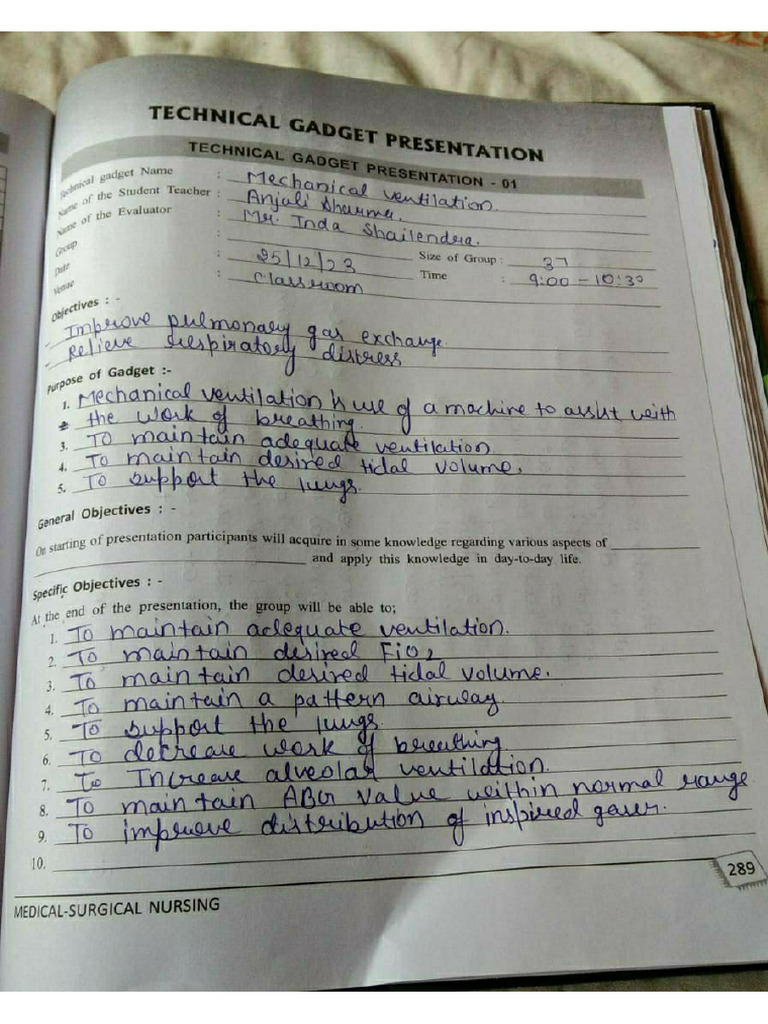 TECHNICAL GADGET PRESENTATION
TECHNICAL GADGET PRESENTATION - 01
Technical gadget Name : Mechanical ventilation.
Name of the Student Teacher : Anjali Sharma.
Name of the Evaluator : Mr. Inda Shailendra.
Group :
Date : 25/12/23 Size of Group : 37
Venue : Classroom Time : 9:00 - 10:30
Objectives : -
Improve pulmonary gas exchange.
Relieve respiratory distress
Purpose of Gadget :-
1. Mechanical ventilation is use of a machine to assist with
2. the work of breathing.
3. To maintain adequate ventilation
4. To maintain desired tidal volume.
5. To support the lungs.
General Objectives : -
On starting of presentation participants will acquire in some knowledge regarding various aspects of
and apply this knowledge in day-to-day life.
Specific Objectives : -
At the end of the presentation, the group will be able to;
1. To maintain adequate ventilation.
2. To maintain desired FiO2
3. To maintain desired tidal volume.
4. To maintain a pattern airway.
5. To support the lungs.
6. To decrease work of breathing
7. To Increase alveolar ventilation.
8. To maintain ABG value within normal range.
9. To improve distribution of inspired gases.
10.
289
MEDICAL-SURGICAL NURSING